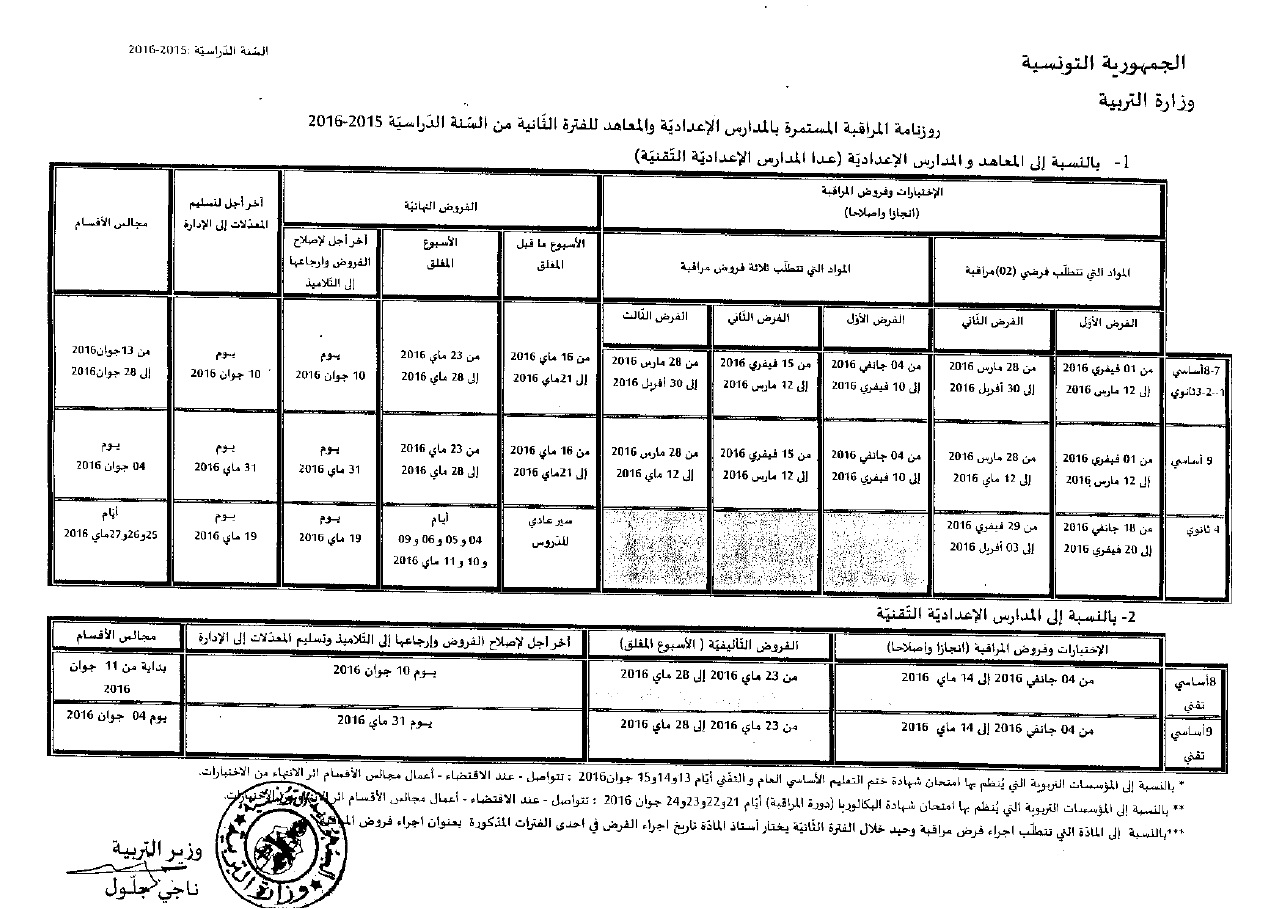 السّنة الدّراسيّة :2015-2016
الجمهورية التونسية
وزارة التربية
روزنامة المراقبة المستمرة بالمدارس الإعداديّة والمعاهد للفترة الثّانية من السّنة الدّراسيّة 2015-2016
1- بالنّسبة إلى المعاهد و المدارس الإعداديّة (عدا المدارس الإعداديّة التّقنيّة)
الإختبارات وفروض المراقبة
(انجازا وإصلاحا)
الفروض النهائيّة
آخر أجل لتسليم
المعدّلات إلى الإدارة
مجالس الأقسام
المواد التي تتطلّب فرضي (02)مراقبة
المواد التي تتطلّب ثلاثة فروض مراقبة
الأسبوع ما قبل
المغلق
الأسبوع
المغلق
آخر أجل لإصلاح
الفروض وإرجاعها
إلى التّلاميذ
الفرض الأوّل
الفرض الثّاني
الفرض الأوّل
الفرض الثّاني
الفرض الثّالث
7-8أساسي
1-2-3ثانوي
من 01 فيفري 2016
إلى 12 مارس 2016
من 28 مارس 2016
إلى 30 أفريل 2016
من 04 جانفي 2016
إلى 10 فيفري 2016
من 15 فيفري 2016
إلى 12 مارس 2016
من 28 مارس 2016
إلى 30 أفريل 2016
من 16 ماي 2016
إلى 21ماي 2016
من 23 ماي 2016
إلى 28 ماي 2016
يوم
10 جوان 2016
يوم
10 جوان 2016
من 13جوان2016
إلى 28 جوان2016
9 أساسي
من 01 فيفري 2016
إلى 12 مارس 2016
من 28 مارس 2016
إلى 12 ماي 2016
من 04 جانفي 2016
إلى 10 فيفري 2016
من 15 فيفري 2016
إلى 12 مارس 2016
من 28 مارس 2016
إلى 12 ماي 2016
من 16 ماي 2016
إلى 21ماي 2016
من 23 ماي 2016
إلى 28 ماي 2016
يوم
31 ماي 2016
يوم
31 ماي 2016
يوم
04 جوان 2016
4 ثانوي
من 18 جانفي 2016
إلى 20 فيفري 2016
من 29 فيفري 2016
إلى 03 أفريل 2016
سير عادي
للدّروس
أيام
04 و 05 و 06 و 09
و 10 و 11 ماي 2016
يوم
19 ماي 2016
يوم
19 ماي 2016
أيّام
25و26و27ماي 2016
2- بالنّسبة إلى المدارس الإعداديّة التّقنيّة
الإختبارات وفروض المراقبة (انجازا وإصلاحا)
الفروض التّأليفيّة ( الأسبوع المغلق)
آخر أجل لإصلاح الفروض وإرجاعها إلى التّلاميذ وتسليم المعدّلات إلى الإدارة
مجالس الأقسام
8أساسي
تقني
من 04 جانفي 2016 إلى 14 ماي 2016
من 23 ماي 2016 إلى 28 ماي 2016
يوم 10 جوان 2016
بداية من 11 جوان
2016
9أساسي
تقني
من 04 جانفي 2016 إلى 14 ماي 2016
من 23 ماي 2016 إلى 28 ماي 2016
يوم 31 ماي 2016
يوم 04 جوان 2016
* بالنسبة إلى المؤسسات التربوية التي يُنظم بها امتحان شهادة ختم التعليم الأساسي العام و التقني أيّام 13و14و15 جوان2016 : تتواصل - عند الاقتضاء - أعمال مجالس الأقسام اثر الانتهاء من الاختبارات.
** بالنسبة إلى المؤسسات التربوية التي يُنظم بها امتحان شهادة البكالوريا (دورة المراقبة) أيّام 21و22و23و24 جوان 2016 : تتواصل - عند الاقتضاء - أعمال مجالس الأقسام اثر الاختبارات.
***بالنسبة إلى المادّة التي تتطلّب اجراء فرض مراقبة وحيد خلال الفترة الثّانيّة يختار أستاذ المادّة تاريخ اجراء الفرض في احدى الفترات المذكورة بعنوان اجراء فروض
وزير التربية
ناجي جلّول
وزارة التربية